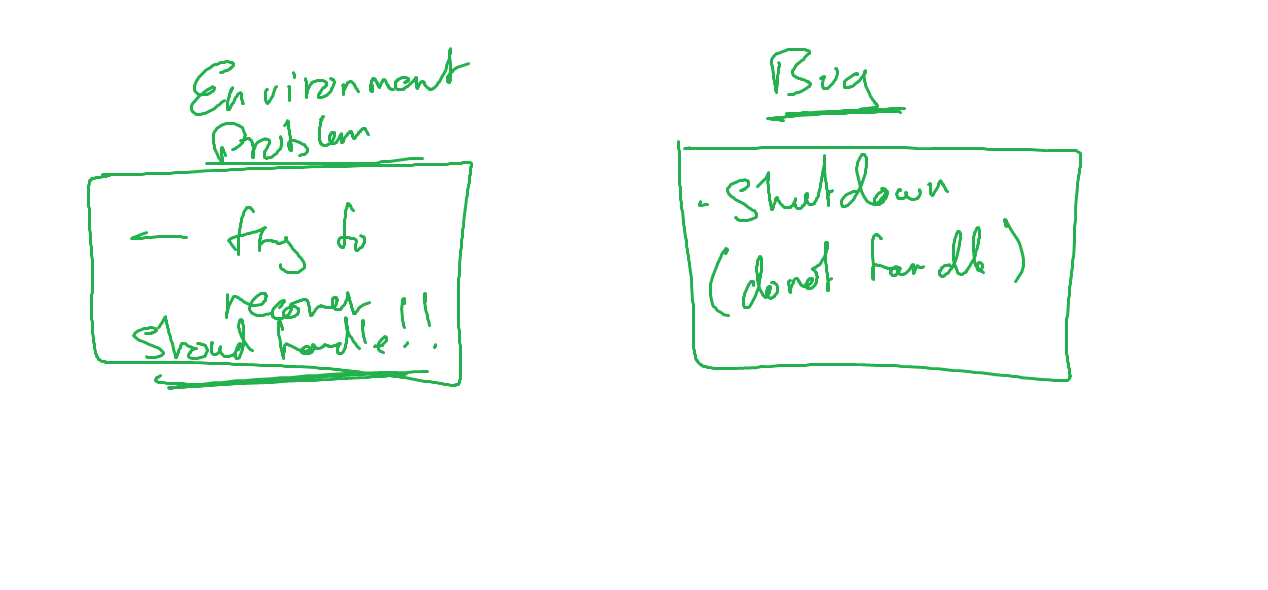 Environment
Problem
try to
recover
Shoud handle!!
Bug
- Shutdown
(do not handle)